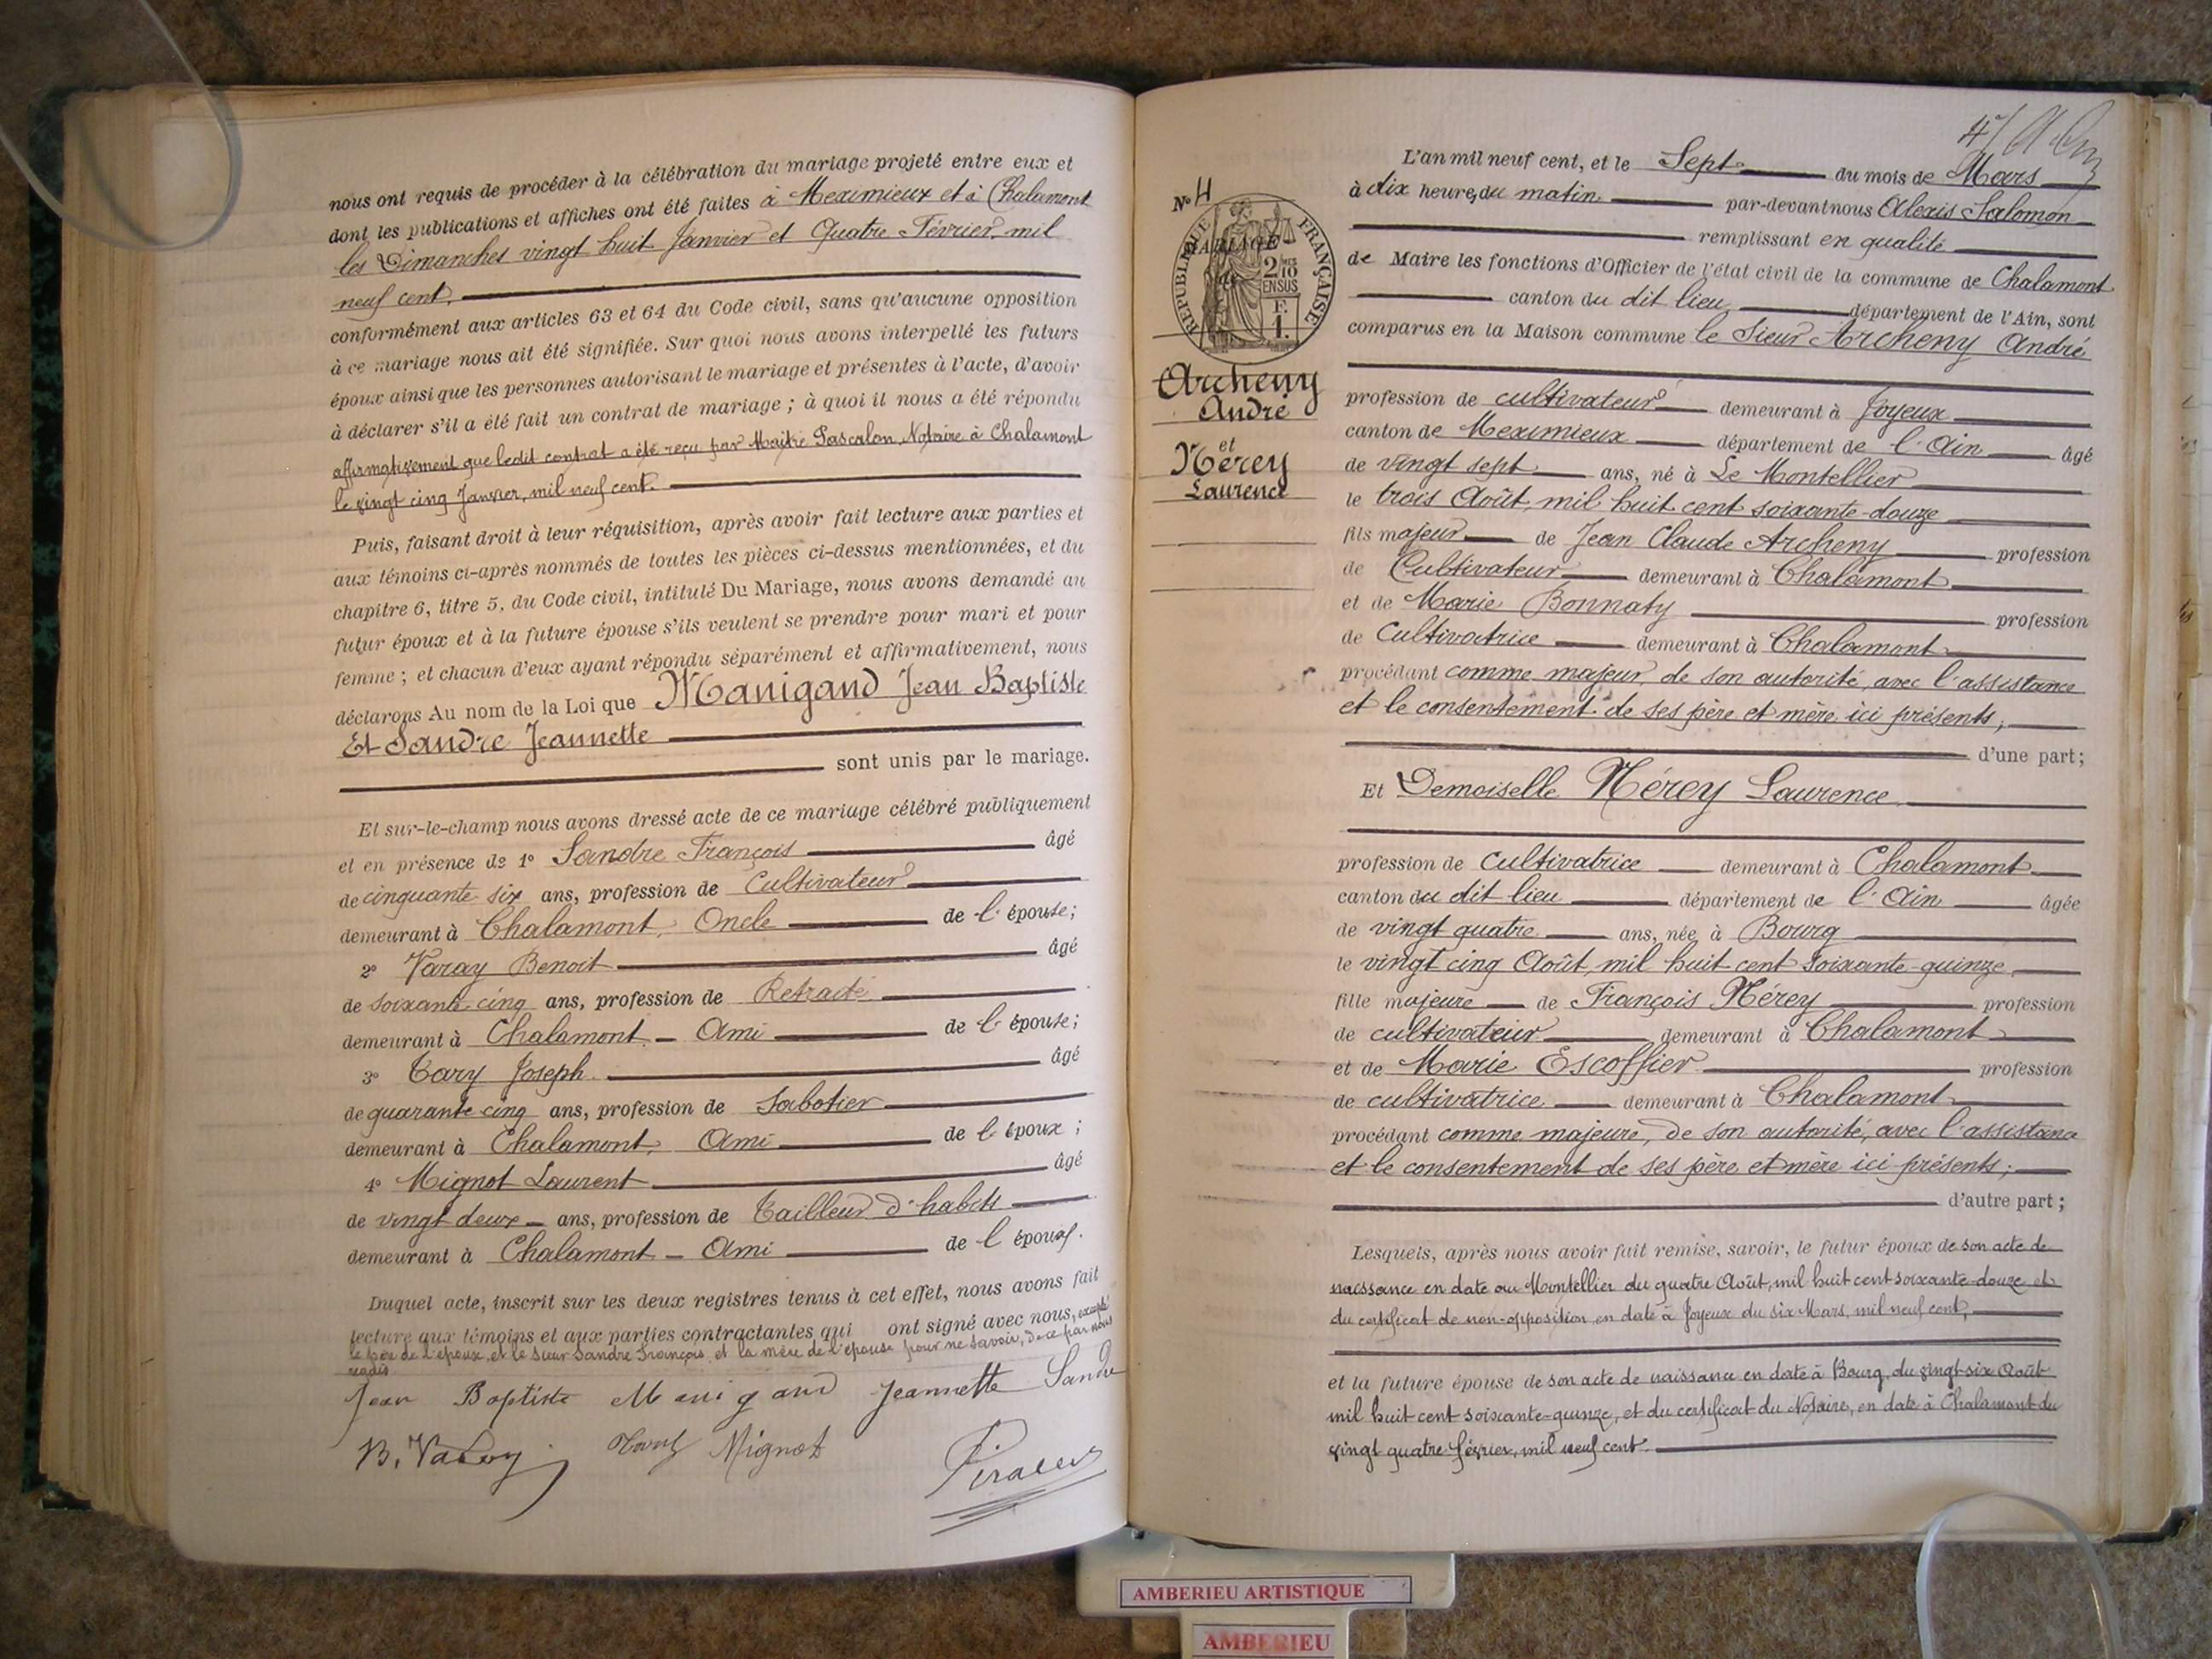 nous ont requis de procéder à la célébration du mariage projeté entre eux et
dont les publications et affiches ont été faites à Meximieux et à Chalamont
les Dimanches vingt huit Janvier et Quatre Février mil
neuf cent.
conformément aux articles 63 et 64 du Code civil, sans qu'aucune opposition
à ce mariage nous ait été signifiée. Sur quoi nous avons interpellé les futurs
époux ainsi que les personnes autorisant le mariage et présentes à l'acte, d'avoir
à déclarer s'il a été fait un contrat de mariage ; à quoi il nous a été répondu
affirmativement que ledit contrat a été reçu par Maître Pascalon, Notaire à Chalamont
le vingt cinq Janvier, mil neuf cent.
Puis, faisant droit à leur réquisition, après avoir fait lecture aux parties et
aux témoins ci-après nommés de toutes les pièces ci-dessus mentionnées, et du
chapitre 6, titre 5, du Code civil, intitulé Du Mariage, nous avons demandé au
futur époux et à la future épouse s'ils veulent se prendre pour mari et pour
femme ; et chacun d'eux ayant répondu séparément et affirmativement, nous
déclarons Au nom de la Loi que Manigand Jean Baptiste
Et Sandre Jeannette
sont unis par le mariage.
Et sur-le-champ nous avons dressé acte de ce mariage célébré publiquement
et en présence de 1° Sandre François âgé
de cinquante six ans, profession de Cultivateur
demeurant à Chalamont, Oncle de l'épouse;
2° Varay Benoit âgé
de soixante cinq ans, profession de Retraité
demeurant à Chalamont - Ami de l'épouse;
3° Tary Joseph âgé
de quarante cinq ans, profession de Sabotier
demeurant à Chalamont, Ami de l'époux ;
4° Mignot Laurent âgé
de vingt deux ans, profession de Tailleur d'habits
demeurant à Chalamont - Ami de l'époux.
Duquel acte, inscrit sur les deux registres tenus à cet effet, nous avons fait
lecture aux témoins et aux parties contractantes qui ont signé avec nous, excepté
le père de l'époux, et le Sieur Sandre François et la mère de l'épouse pour ne savoir, de ce par nous
requis
Jean Baptiste Manigand Jeannette Sandre
B. Varay Mignot
N° 4
MARIAGE
RÉPUBLIQUE FRANÇAISE
2/10
EN SUS
F.
1.
Archeny
André
et
Nérey
Laurence
L'an mil neuf cent, et le Sept du mois de Mars
à dix heures du matin par-devant nous Alexis Salomon
remplissant en qualité
de Maire les fonctions d'Officier de l'état civil de la commune de Chalamont
canton du dit lieu département de l'Ain, sont
comparus en la Maison commune le Sieur Archeny André
profession de cultivateur demeurant à Joyeux
canton de Meximieux département de l'Ain âgé
de vingt sept ans, né à Le Montellier
le trois Août, mil huit cent soixante-douze
fils majeur de Jean Claude Archeny profession
de Cultivateur demeurant à Chalamont
et de Marie Bonnaty profession
de Cultivatrice demeurant à Chalamont
procédant comme majeur, de son autorité, avec l'assistance
et le consentement de ses père et mère ici présents;
d'une part;
Et Demoiselle Nérey Laurence
profession de cultivatrice demeurant à Chalamont
canton du dit lieu département de l'Ain âgée
de vingt quatre ans, née à Bourg
le vingt cinq Août, mil huit cent soixante-quinze
fille majeure de François Nérey profession
de cultivateur demeurant à Chalamont
et de Marie Escoffier profession
de cultivatrice demeurant à Chalamont
procédant comme majeure, de son autorité, avec l'assistance
et le consentement de ses père et mère ici présents;
d'autre part ;
Lesquels, après nous avoir fait remise, savoir, le futur époux de son acte de
naissance en date au Montellier du quatre Août, mil huit cent soixante-douze et
du certificat de non-opposition en date à Joyeux du six Mars, mil neuf cent,
et la future épouse de son acte de naissance en date à Bourg, du vingt-six Août
mil huit cent soixante-quinze, et du certificat du Notaire, en date à Chalamont du
vingt quatre février, mil neuf cent.
AMBERIEU ARTISTIQUE
AMBERIEU